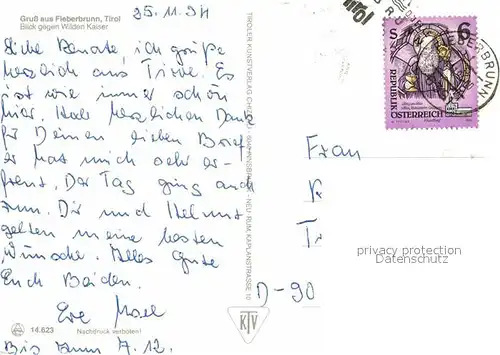 Gruß aus Fieberbrunn, Tirol
Blick gegen Wilden Kaiser
25.11.94
Liebe Renate, ich grüße
herzlich aus Tirol. Es
ist wie immer schön
hier. Hab herzlichen Dank
für Deinen lieben Brief
er hat mich sehr er-
freut. Der Tag ging auch
rum. Dir und Helmut
gelten meine besten
Wünsche. Alles Gute
Euch Beiden.
Bis zum 7.12.
14.623
Nachdruck verboten!
TIROLER KUNSTVERLAG
NEU-RUM, KAPLANSTRASSE 10
KTV
S 6
REPUBLIK
ÖSTERREICH
FIEBERBRUNN
Tirol
Frau
D-90
privacy protection
Datenschutz